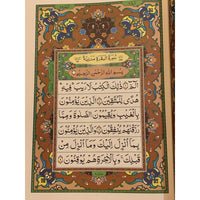 سورة البقرة مدنية
بِسْمِ اللهِ الرَّحْمٰنِ الرَّحِيْمِ
الٓمّٓ ذٰلِكَ الْكِتٰبُ لَا رَيْبَ فِيْهِ
هُدًى لِّلْمُتَّقِيْنَ الَّذِيْنَ يُؤْمِنُوْنَ
بِالْغَيْبِ وَيُقِيْمُوْنَ الصَّلٰوةَ وَمِمَّا
رَزَقْنٰهُمْ يُنْفِقُوْنَ وَالَّذِيْنَ يُؤْمِنُوْنَ
بِمَآ اُنْزِلَ اِلَيْكَ وَمَآ اُنْزِلَ مِنْ
قَبْلِكَ وَبِالْاٰخِرَةِ هُمْ يُوْقِنُوْنَ